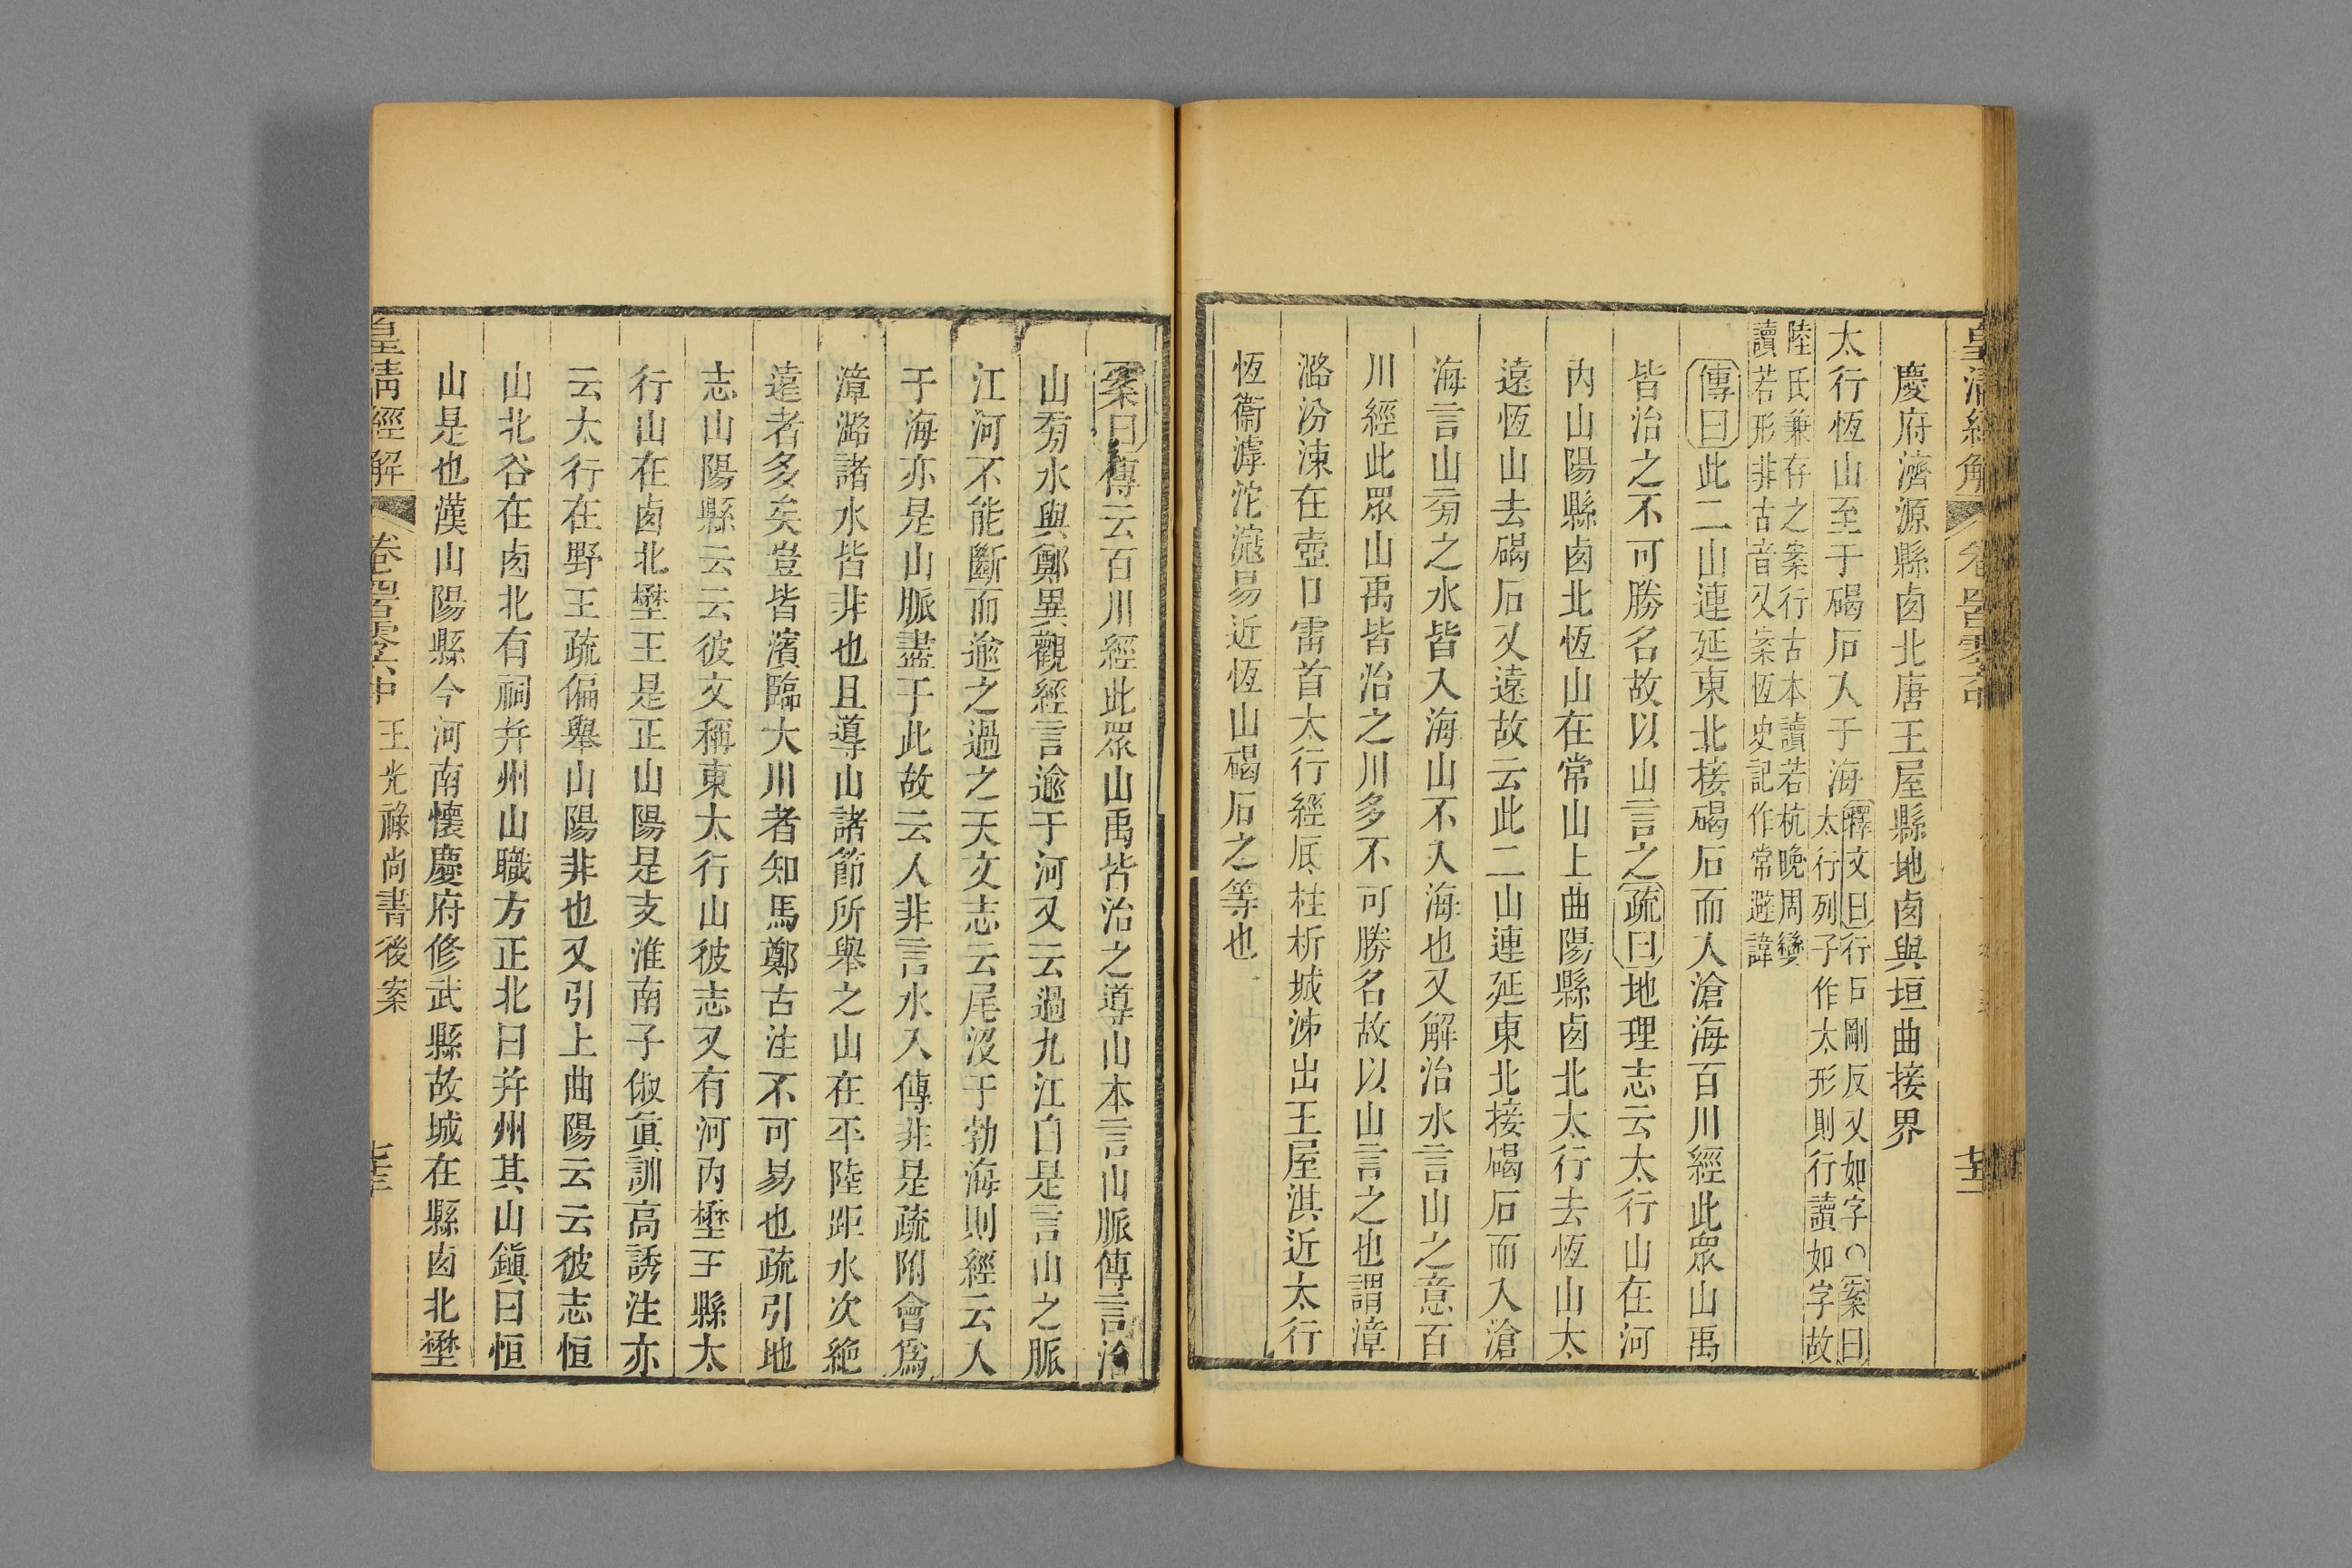 慶府濟源縣鹵北唐王屋縣地鹵與垣曲接界
太行恆山至于碣石入于海釋文曰行戶剛反又如字○案曰
太行列子作太形則行讀如字故
陸氏兼存之案行古本讀若杭晚周變
讀若形非古音又案恆史記作常避諱
傳曰此二山連延東北接碣石而入滄海百川經此眾山禹
皆治之不可勝名故以山言之疏曰地理志云太行山在河
內山陽縣鹵北恆山在常山上曲陽縣鹵北太行去恆山太
遠恆山去碣石又遠故云此二山連延東北接碣石而入滄
海言山㫄之水皆入海山不入海也又解治水言山之意百
川經此眾山禹皆治之川多不可勝名故以山言之也謂漳
潞汾涑在壺口雷首太行經底柱析城泲出王屋淇近太行
恆衞滹沱滱易近恆山碣石之等也
案曰傳云百川經此眾山禹皆治之導山本言山脈傳言治
山㫄水與鄭異觀經言逾于河又云過九江自是言山之脈
江河不能斷而逾之過之天文志云尾沒于勃海則經云入
于海亦是山脈盡于此故云入非言水入傳非是疏附會爲
漳潞諸水皆非也且導山諸節所舉之山在平陸距水次絶
遠者多矣豈皆濱臨大川者知馬鄭古注不可易也疏引地
志山陽縣云云彼文稱東太行山彼志又有河內壄王縣太
行山在鹵北壄王是正山陽是支淮南子俶眞訓高誘注亦
云太行在野王疏偏舉山陽非也又引上曲陽云云彼志恒
山北谷在鹵北有祠并州山職方正北曰并州其山鎭曰恒
山是也漢山陽縣今河南懷慶府修武縣故城在縣鹵北壄
皇清經解 卷四百零六中 王光祿尚書後案